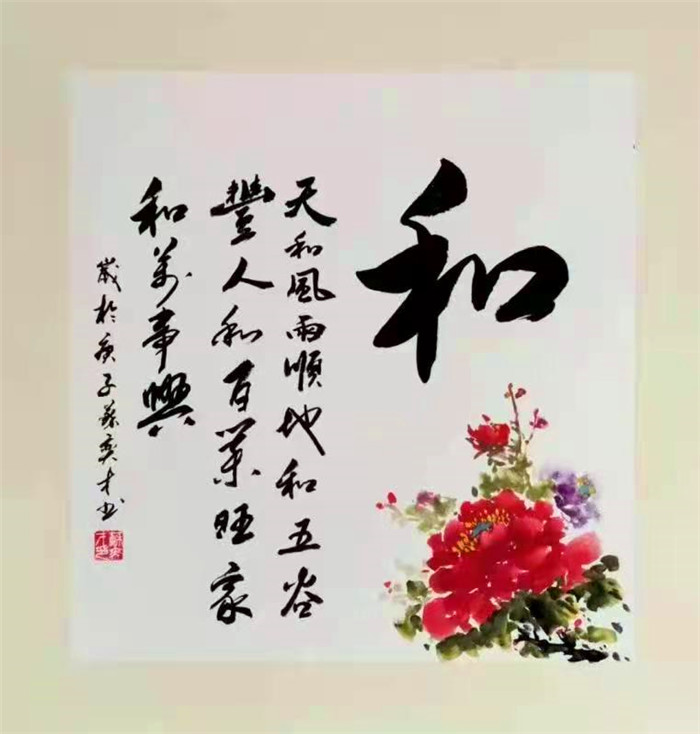 和
天和風雨順地和五谷
豐人和百業旺家
和萬事興
歲於庚子蘇奕才书